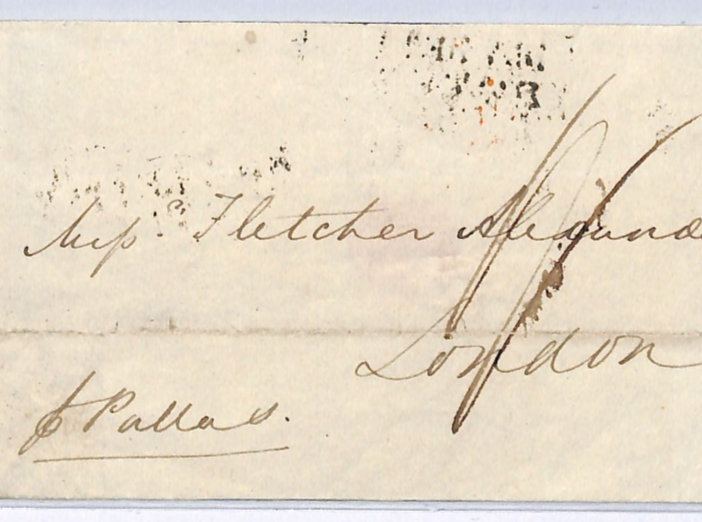 Messrs. Fletcher Alexand
London
p Pallas.